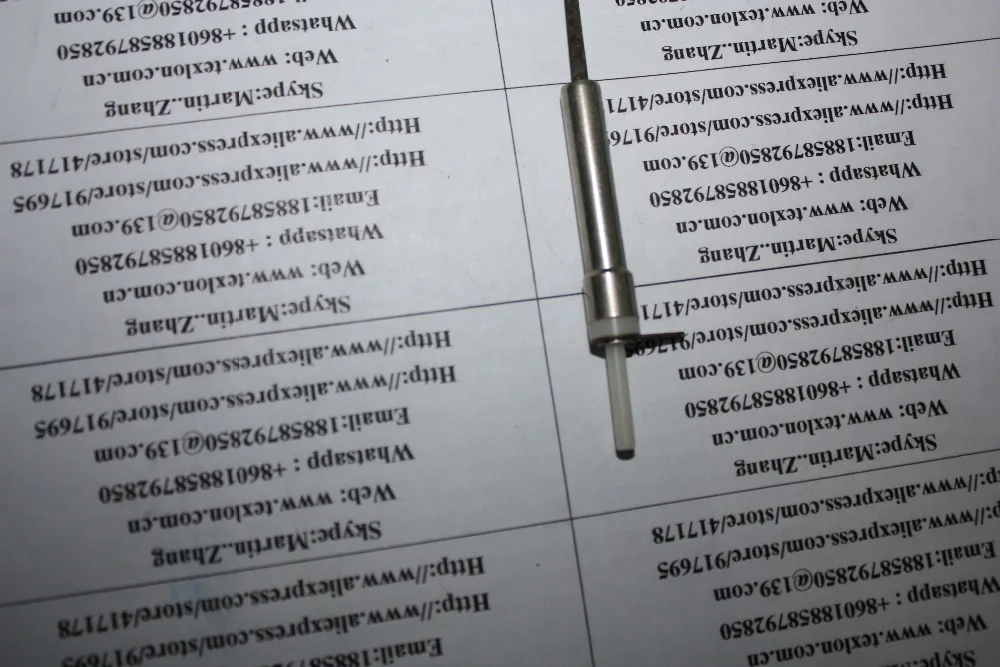 Web: www.texlon.com.cn
Whatsapp : +86018858792850
Email:18858792850@139.com
p://www.aliexpress.com/store/917695
p://www.aliexpress.com/store/417178
Skype:Martin..Zhang
Web: www.texlon.com.cn
Whatsapp : +86018858792850
Email:18858792850@139.com
Http://www.aliexpress.com/store/917695
Http://www.aliexpress.com/store/4171
Skype:Martin..Zhang
Web: www.texlon.com.cn
Whatsapp : +86018858792850
Email:18858792850@139.com
Http://www.aliexpress.com/store/9176
Http://www.aliexpress.com/store/4171
Skype:Martin..Zhang
Web: www.texlon.com.cn
Email
Http://www.aliexpress.com/store/917695
Http://www.aliexpress.com/store/417178
Skype:Martin..Zhang
Web: www.texlon.com.cn
Whatsapp : +86018858792850
Email:18858792850@139.com
Http://www.aliexpress.com/store/917695
Http://www.aliexpress.com/store/417178
Skype:Martin..Zhang
Web: www.texlon.com.cn
Whatsapp : +86018858792850
Email:18858792850@139.com
Http://www.aliexpress.com/store/917695
Http://www.aliexpress.com/store/417178
Skype:Martin..Zhang
Web: www.texlon.com.cn
Whatsapp : +86018858792850
18858792850@139.com